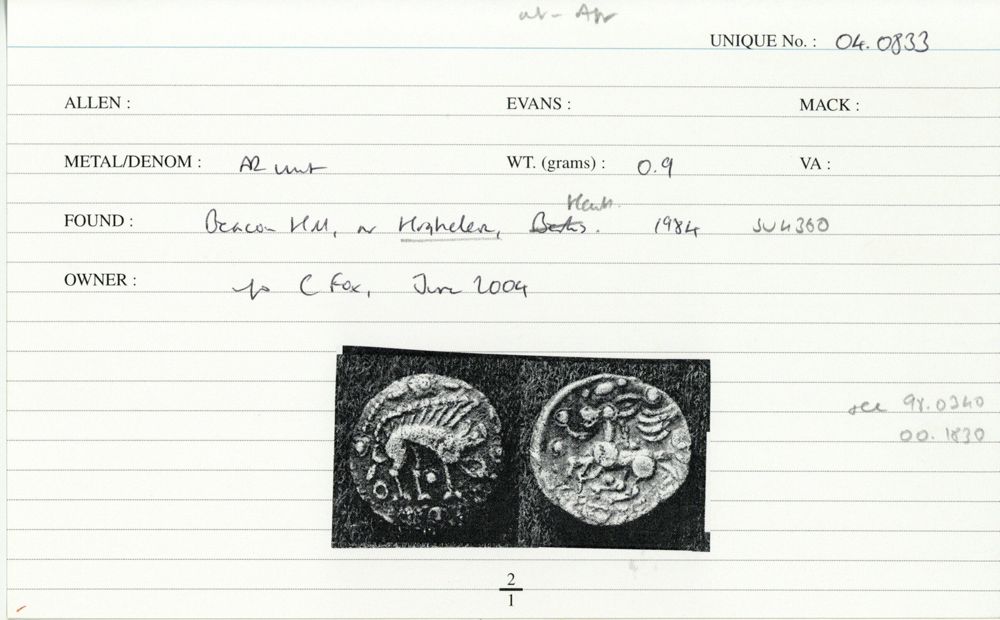 UNIQUE No. : 04.0833
ALLEN : EVANS : MACK :
METAL/DENOM : AR unit WT. (grams) : 0.9 VA :
Hants.
FOUND : Beacon Hill, nr Highclere, Berks. 1984 SU4360
OWNER : C Fox, June 2004
see 98.0340
00.1830
2
1